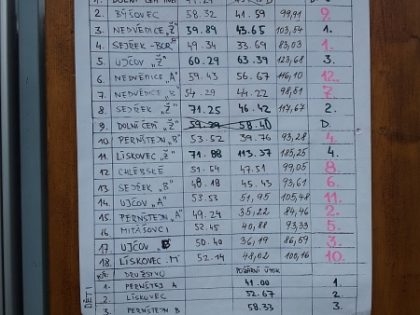 2. BÝŠOVEC 58.32 41.59 99,91 9.
3. NEDVĚDICE „Ž" 59.89 43.65 103,54 1.
4. SEJŘEK - BOR 49.34 33.69 83,03 1.
5. UJČOV „Ž" 60.29 63.39 123,68 3.
6. NEDVĚDICE „A" 59.43 56.67 116,10 12.
7. NEDVĚDICE „B" 54.29 44.22 98,51 7.
8. SEJŘEK „Ž" 71.25 46.42 117,67 2.
9. DOLNÍ ČEPÍ „Ž" D.
10. PERNŠTEJN „B" 53.52 39.76 93,28 4.
11. LÍSKOVEC „Ž" 71.88 113.37 185,25 4.
12. CHLÉBSKÉ 51.54 47.51 99,05 8.
13. SEJŘEK „B" 48.18 45.43 93,61 6.
14. UJČOV „A" 53.53 51,95 105,48 11.
15. PERNŠTEJN „A" 49.24 35,22 84,46 2.
16. MITÁŠOVCI 52.45 40,88 93,33 5.
17. UJČOV 50.40 36,19 86,59 3.
18. LÍSKOVEC „M" 52.14 48,02 100,16 10.
DĚTI DRUŽSTVO POŽÁRNÍ ÚTOK
1. PERNŠTEJN A 41.00 1.
2. LÍSKOVEC 52.67 2.
3. PERNŠTEJN B 58.33 3.